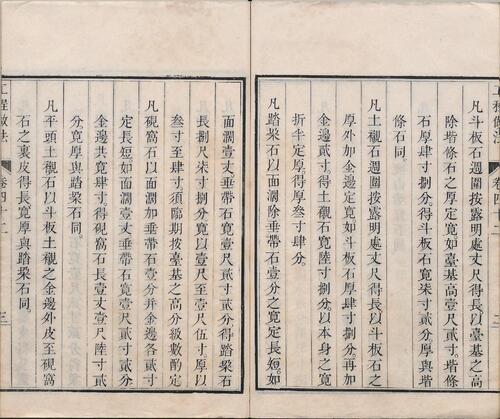 凡斗板石週圍按露明處丈尺得長以臺基之高
除堦條石之厚定寬如臺基高壹尺貳寸堦條
石厚肆寸捌分得斗板石寬柒寸貳分厚與堦
條石同
凡土襯石週圍按露明處丈尺得長以斗板石之
厚外加金邊定寬如斗板石厚肆寸捌分再加
金邊貳寸得土襯石寬陸寸捌分以本身之寬
折半定厚得厚叁寸肆分
凡踏垜石以面濶除垂帶石壹分之寬定長短如
工程做法
卷四十二
三
面濶壹丈垂帶石寬壹尺貳寸貳分得踏垜石
長捌尺柒寸捌分寬以壹尺至壹尺伍寸厚以
叁寸至肆寸須臨期按臺基之高分級數酌定
凡硯窩石以面濶加垂帶石壹分并金邊各貳寸
定長短如面濶壹丈垂帶石寬壹尺貳寸貳分
金邊共寬肆寸得硯窩石長壹丈壹尺陸寸貳
分寬厚與踏垜石同
凡平頭土襯石以斗板土襯之金邊外皮至硯窩
石之裏皮得長寬厚與踏垜石同